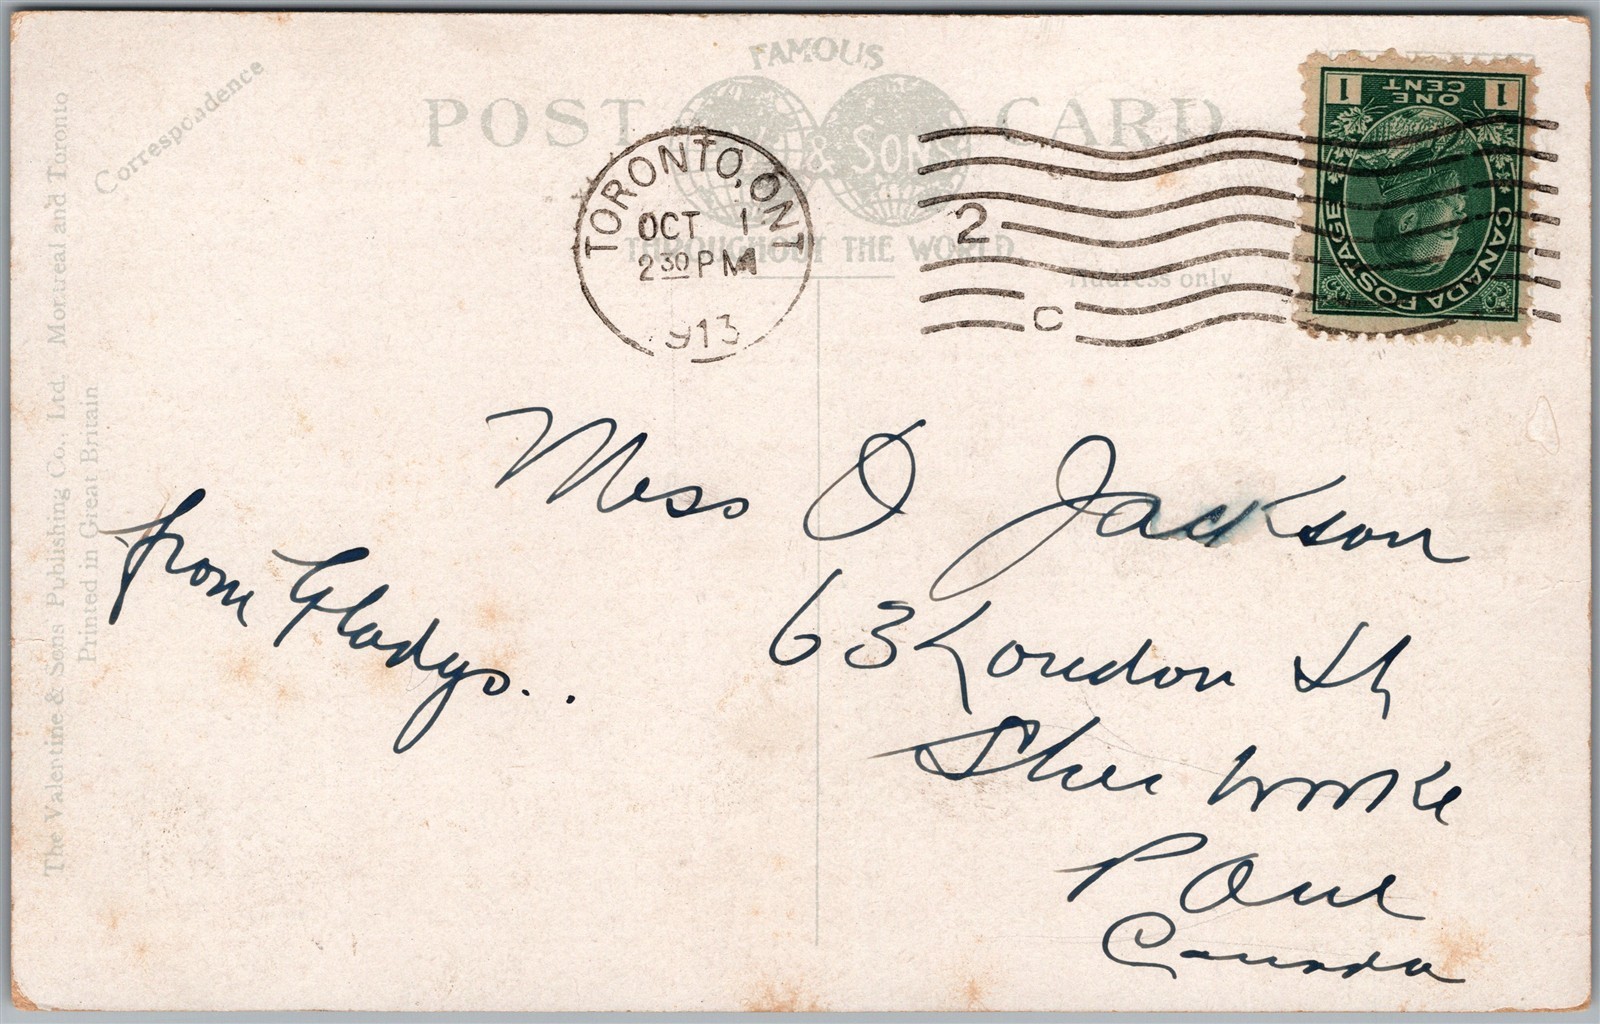 FAMOUS
POST CARD
& SONS
THROUGHOUT THE WORLD
Correspondence
Address only
The Valentine & Sons Publishing Co., Ltd. Montreal and Toronto
Printed in Great Britain
TORONTO, ONT
OCT 1
2 30 PM
913
2
C
1 ONE CENT 1
CANADA POSTAGE
Miss O Jackson
63 London St
Sherbrooke
P Que
Canada
from Gladys..